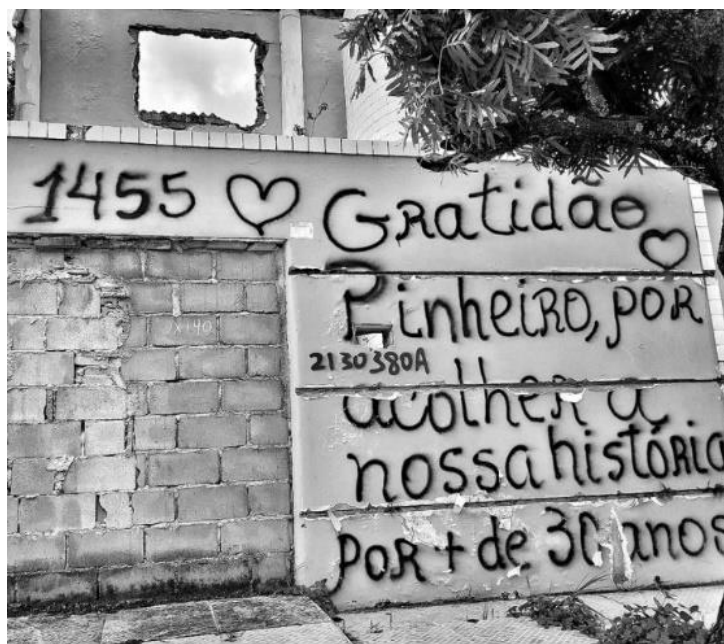 1455 ♡ Gratidão ♡
Pinheiro, por
2130380A
acolher a
nossa história
por + de 30 anos